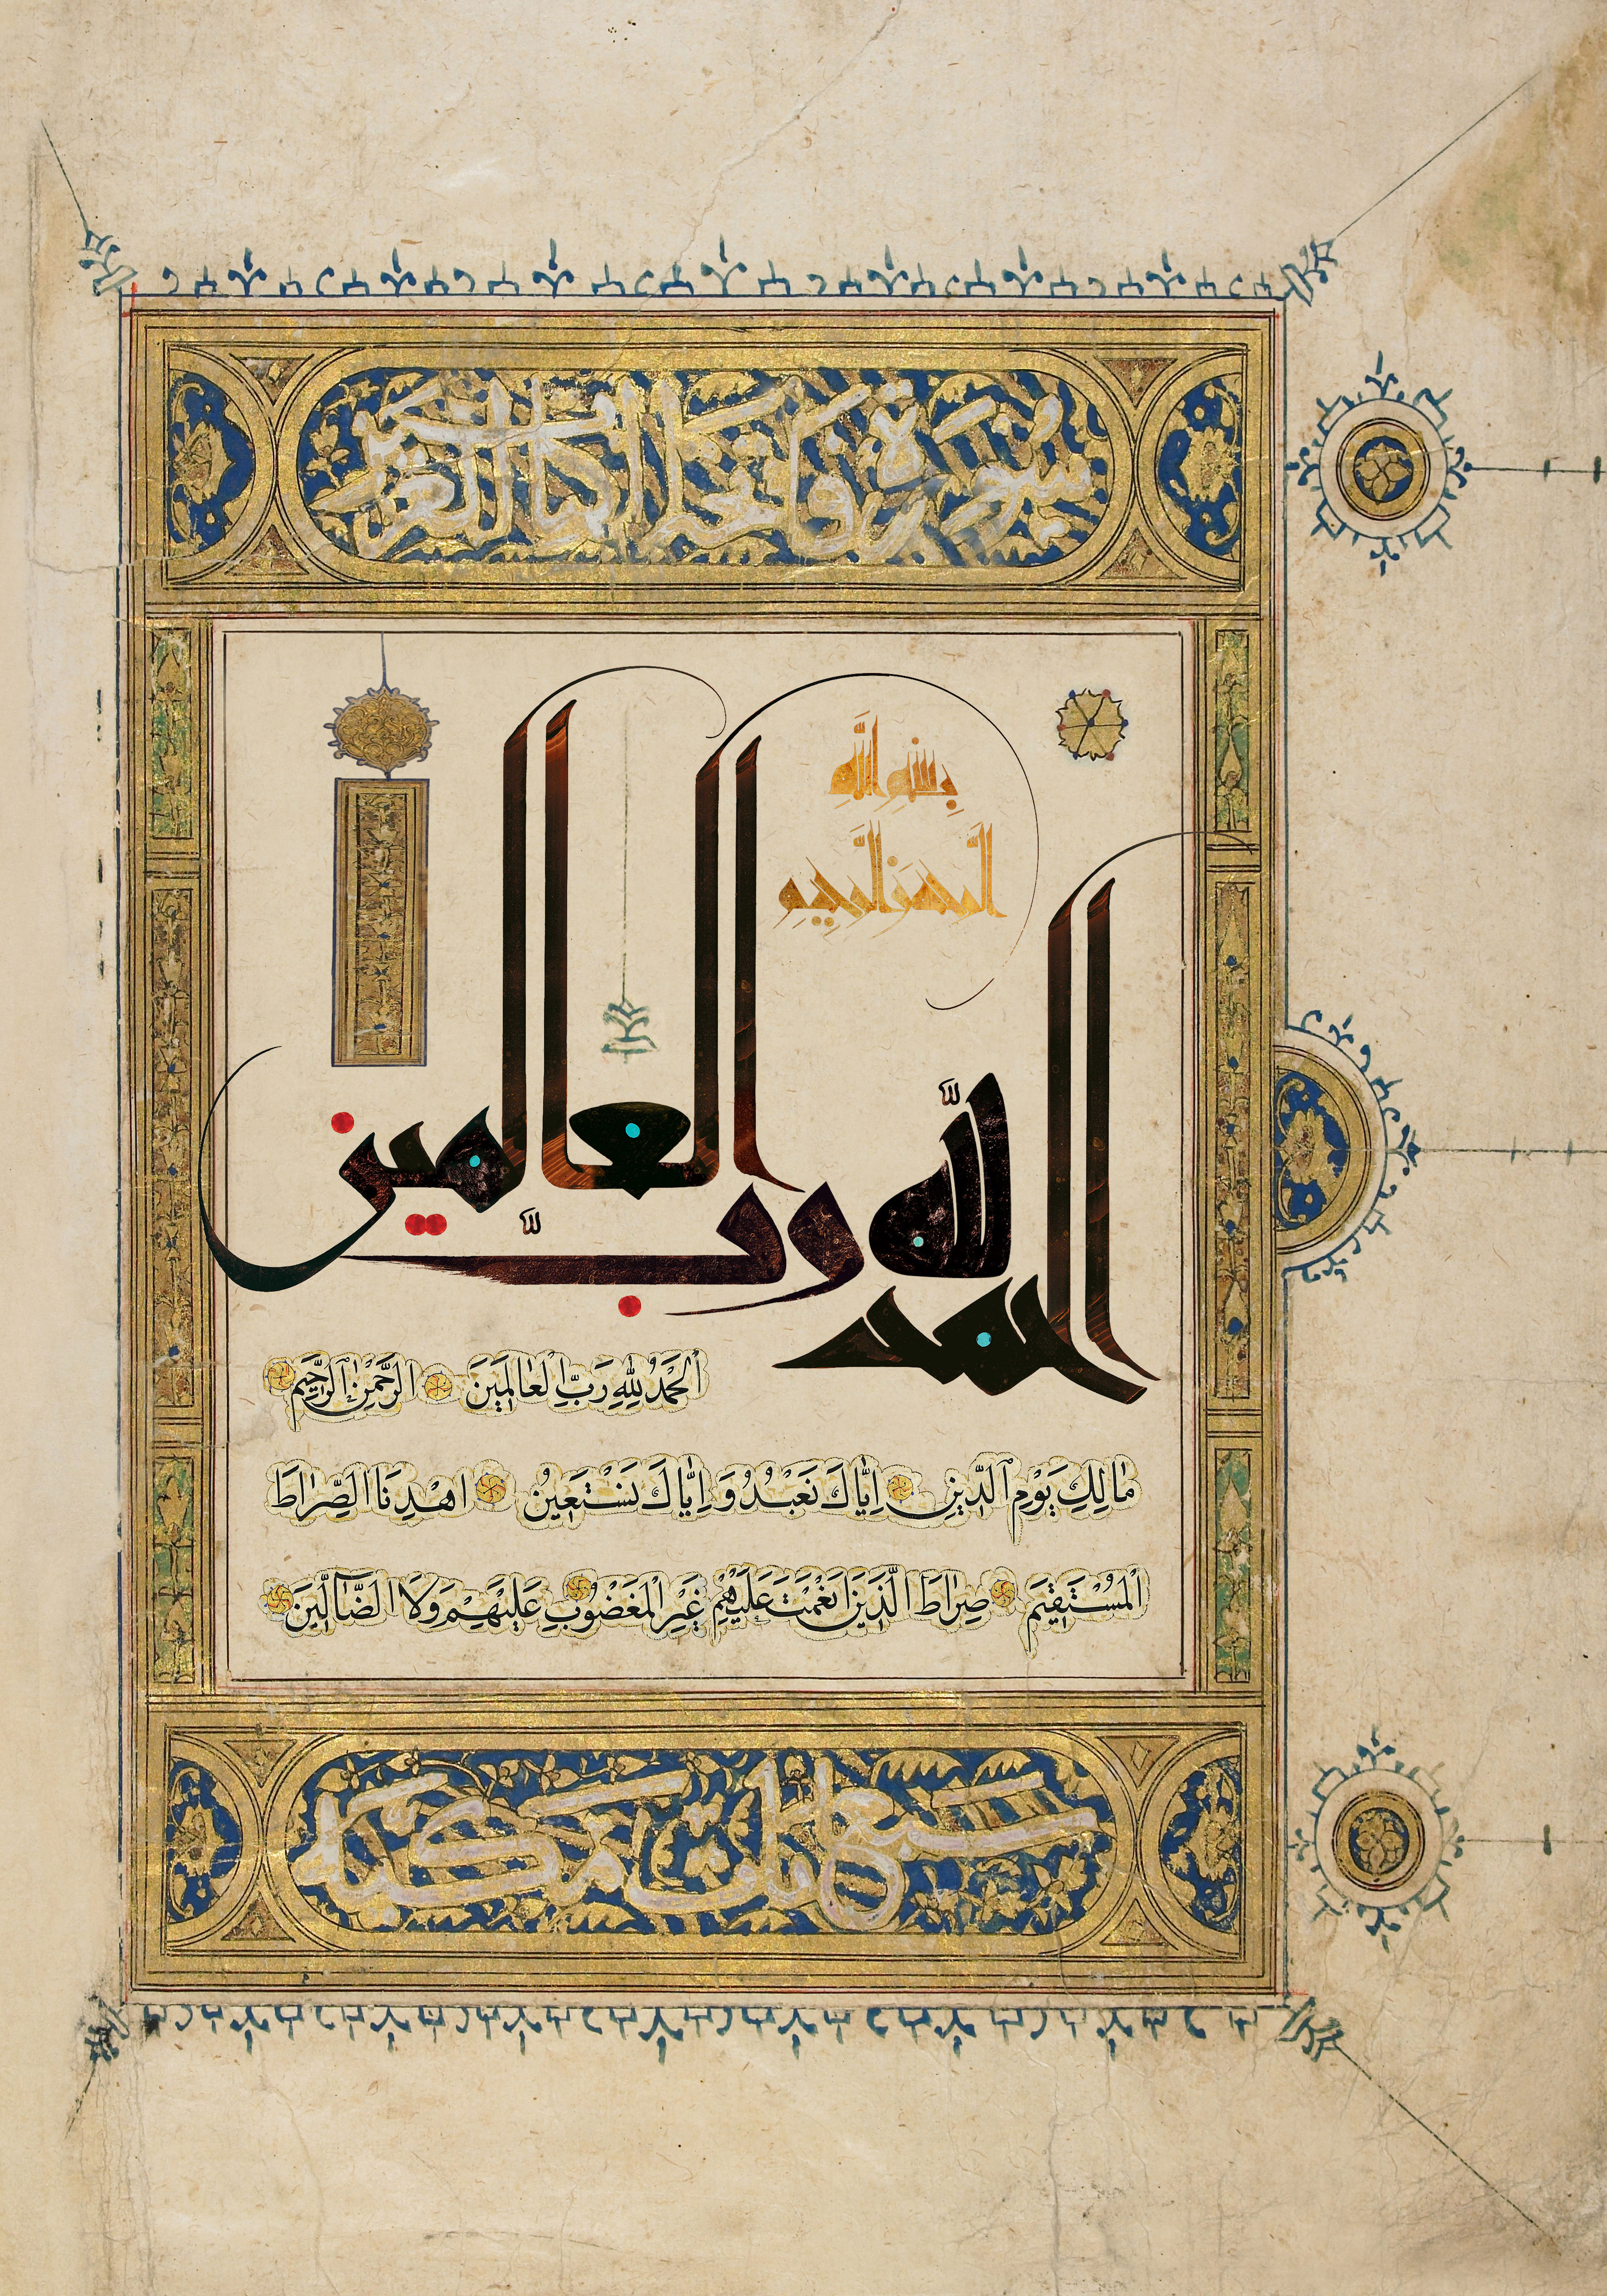 سورة فاتحة الكتاب
بسم الله
الرحمن الرحيم
الحمد لله رب العالمين
اَلْحَمْدُ لِلّٰهِ رَبِّ الْعَالَمِينَ الرَّحْمٰنِ الرَّحِيمِ
مَالِكِ يَوْمِ الدِّينِ اِيَّاكَ نَعْبُدُ وَ اِيَّاكَ نَسْتَعِينُ اهْدِنَا الصِّرَاطَ
الْمُسْتَقِيمَ صِرَاطَ الَّذِينَ اَنْعَمْتَ عَلَيْهِمْ غَيْرِ الْمَغْضُوبِ عَلَيْهِمْ وَلَا الضَّالِّينَ
سبع ايات مكية